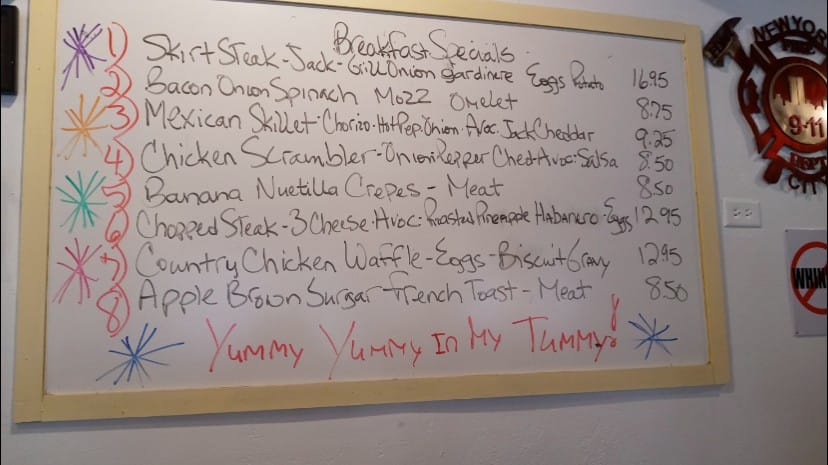 Breakfast Specials
1) Skirt Steak - Jack - Grill Onion Gardinere Eggs Potato 16.95
2) Bacon Onion Spinach Mozz Omelet 8.75
3) Mexican Skillet - Chorizo - Hot Pep. Onion. Avoc. Jack Cheddar 9.25
4) Chicken Scrambler - Onion Pepper Ched - Avoc - Salsa 8.50
5) Banana Nuetilla Crepes - Meat 8.50
6) Chopped Steak - 3 Cheese - Avoc - Roasted Pineapple Habanero - Eggs 12.95
7) Country Chicken Waffle - Eggs - Biscuit Gravy 12.95
8) Apple Brown Surgar French Toast - Meat 8.50
Yummy Yummy In My Tummy!
NEW YORK
9-11
DEPT
CITY
WHIN